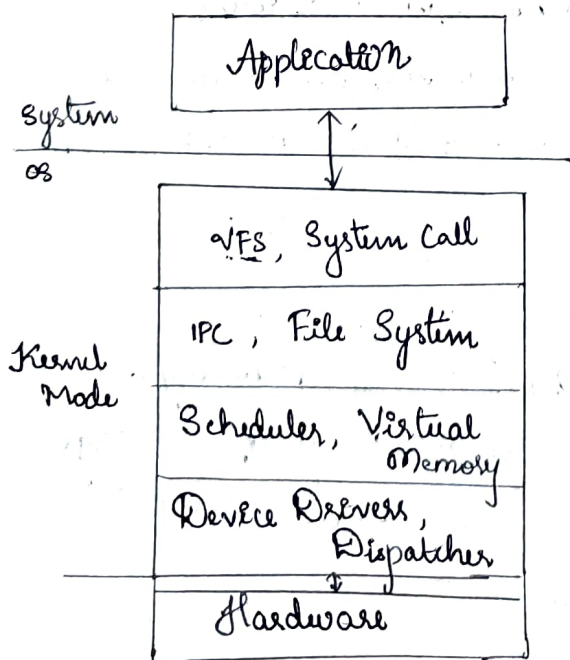 Application
System
OS
VFS, System Call
IPC, File System
Kernel
Mode
Scheduler, Virtual
Memory
Device Drivers,
Dispatcher
Hardware